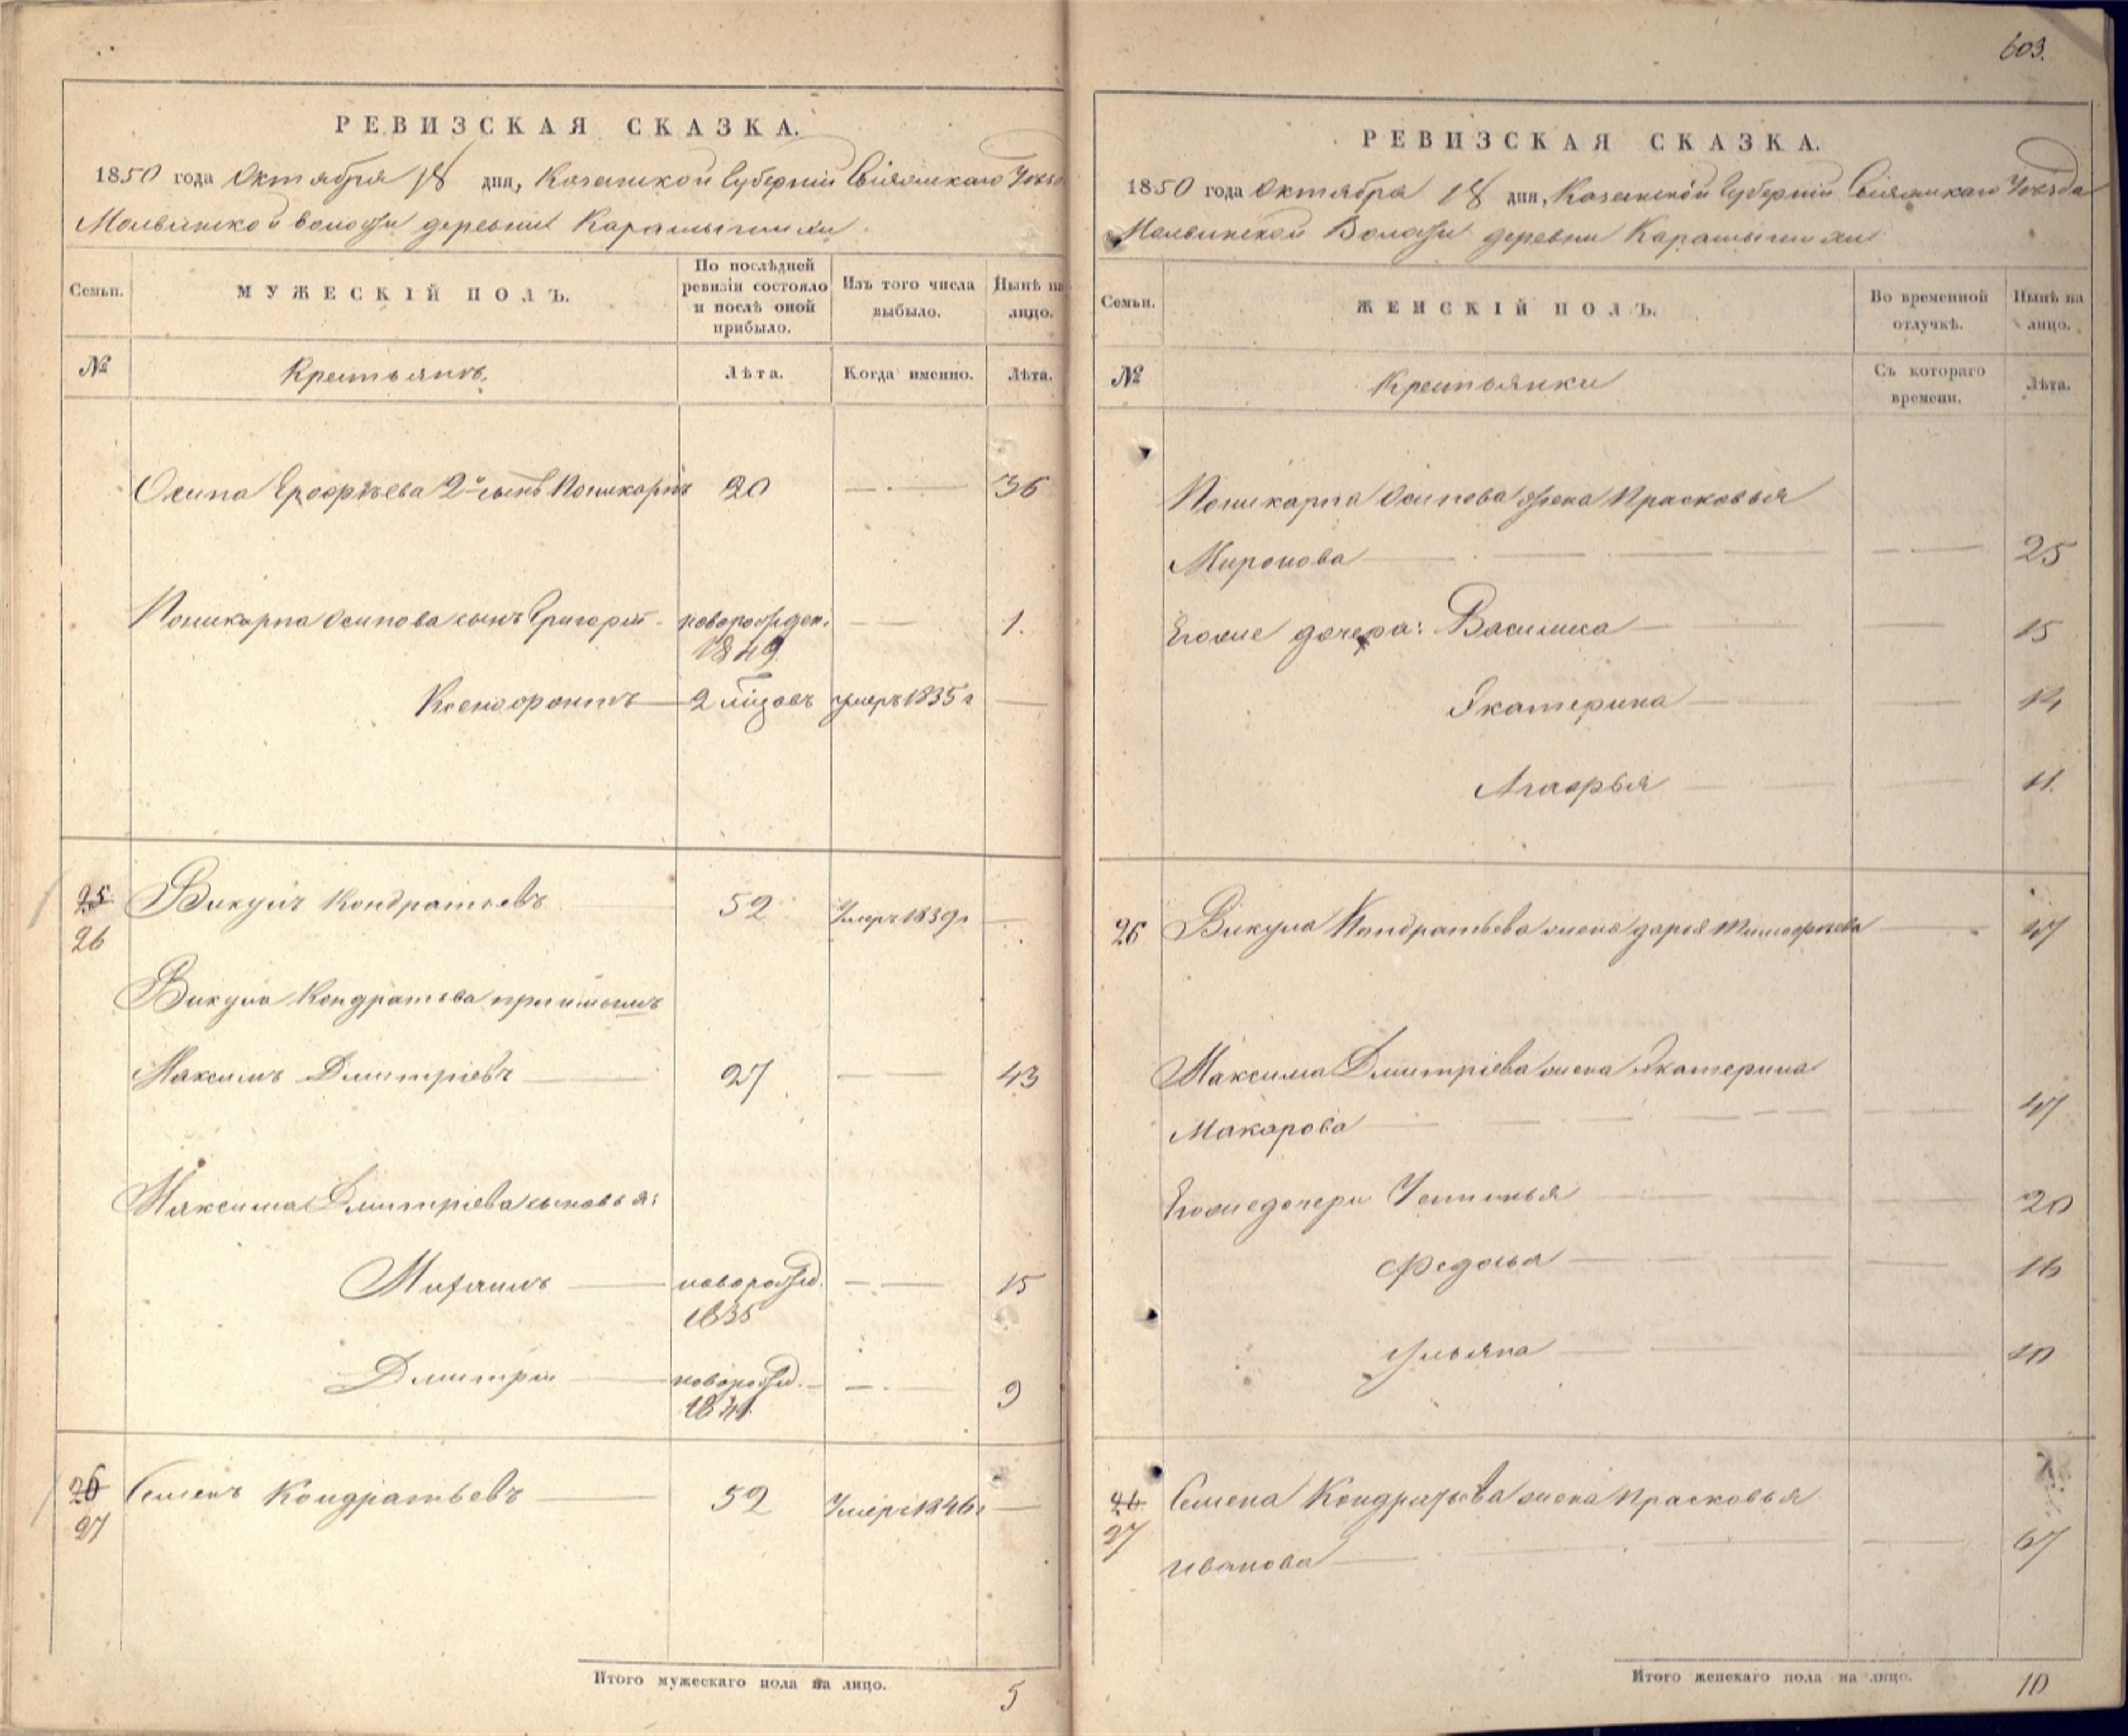 603.
РЕВИЗСКАЯ СКАЗКА.
1850 года Октября 18 дня, Казанской Губерніи Свіяжскаго Уезда
Молвинской волости деревни Карашыгишхи
Семьи.
МУЖЕСКІЙ ПОЛЪ.
По послѣдней ревизіи состояло и послѣ оной прибыло.
Изъ того числа выбыло.
Нынѣ на лицо.
№
Крестьянъ.
Лѣта.
Когда именно.
Лѣта.
Осипа Ерофѣева 2й сынъ Поликарпъ 20 36
Поликарпа Осипова сынъ Григорій новорожден. 1.
1849
Ксенофонтъ 2 умеръ 1835 г
25 Викулъ Кондратьевъ 52 Умеръ 1839 г
26
Викула Кондратьева приимышъ
Максимъ Дмитріевъ 27 43
Максима Дмитріева сыновья:
Михаилъ новорожд. 15
1835
Дмитрій новорожд. 9
1841
26 Семенъ Кондратьевъ 52 Умеръ 1846 г
27
Итого мужескаго пола на лицо. 5
РЕВИЗСКАЯ СКАЗКА.
1850 года Октября 18 дня, Казанской Губерніи Свіяжскаго Уезда
Молвинской Волости деревни Карашыгишхи
Семьи.
ЖЕНСКІЙ ПОЛЪ.
Во временной отлучкѣ.
Нынѣ на лицо.
№
Крестьянки
Съ котораго времени.
Лѣта.
Поликарпа Осипова жена Прасковья
Миронова 25
Егоже дочера: Василиса 15
Екатерина 14
Агафья 11.
26 Викула Кондратьева жена дарья Тимофѣева 47
Максима Дмитріева жена Екатерина
Макарова 47
Егоже дочери Устинья 20
Федосья 16
Ульяна 10
26. Семена Кондратьева жена Прасковья
27 Иванова 67
Итого женскаго пола на лицо. 10